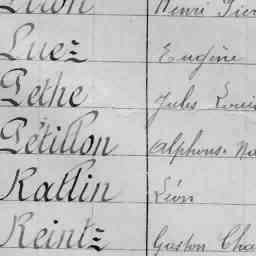 Luez Eugène
Pethe Jules Louis
Pétillon Alphonse
Rallin Léon
Reintz Gaston